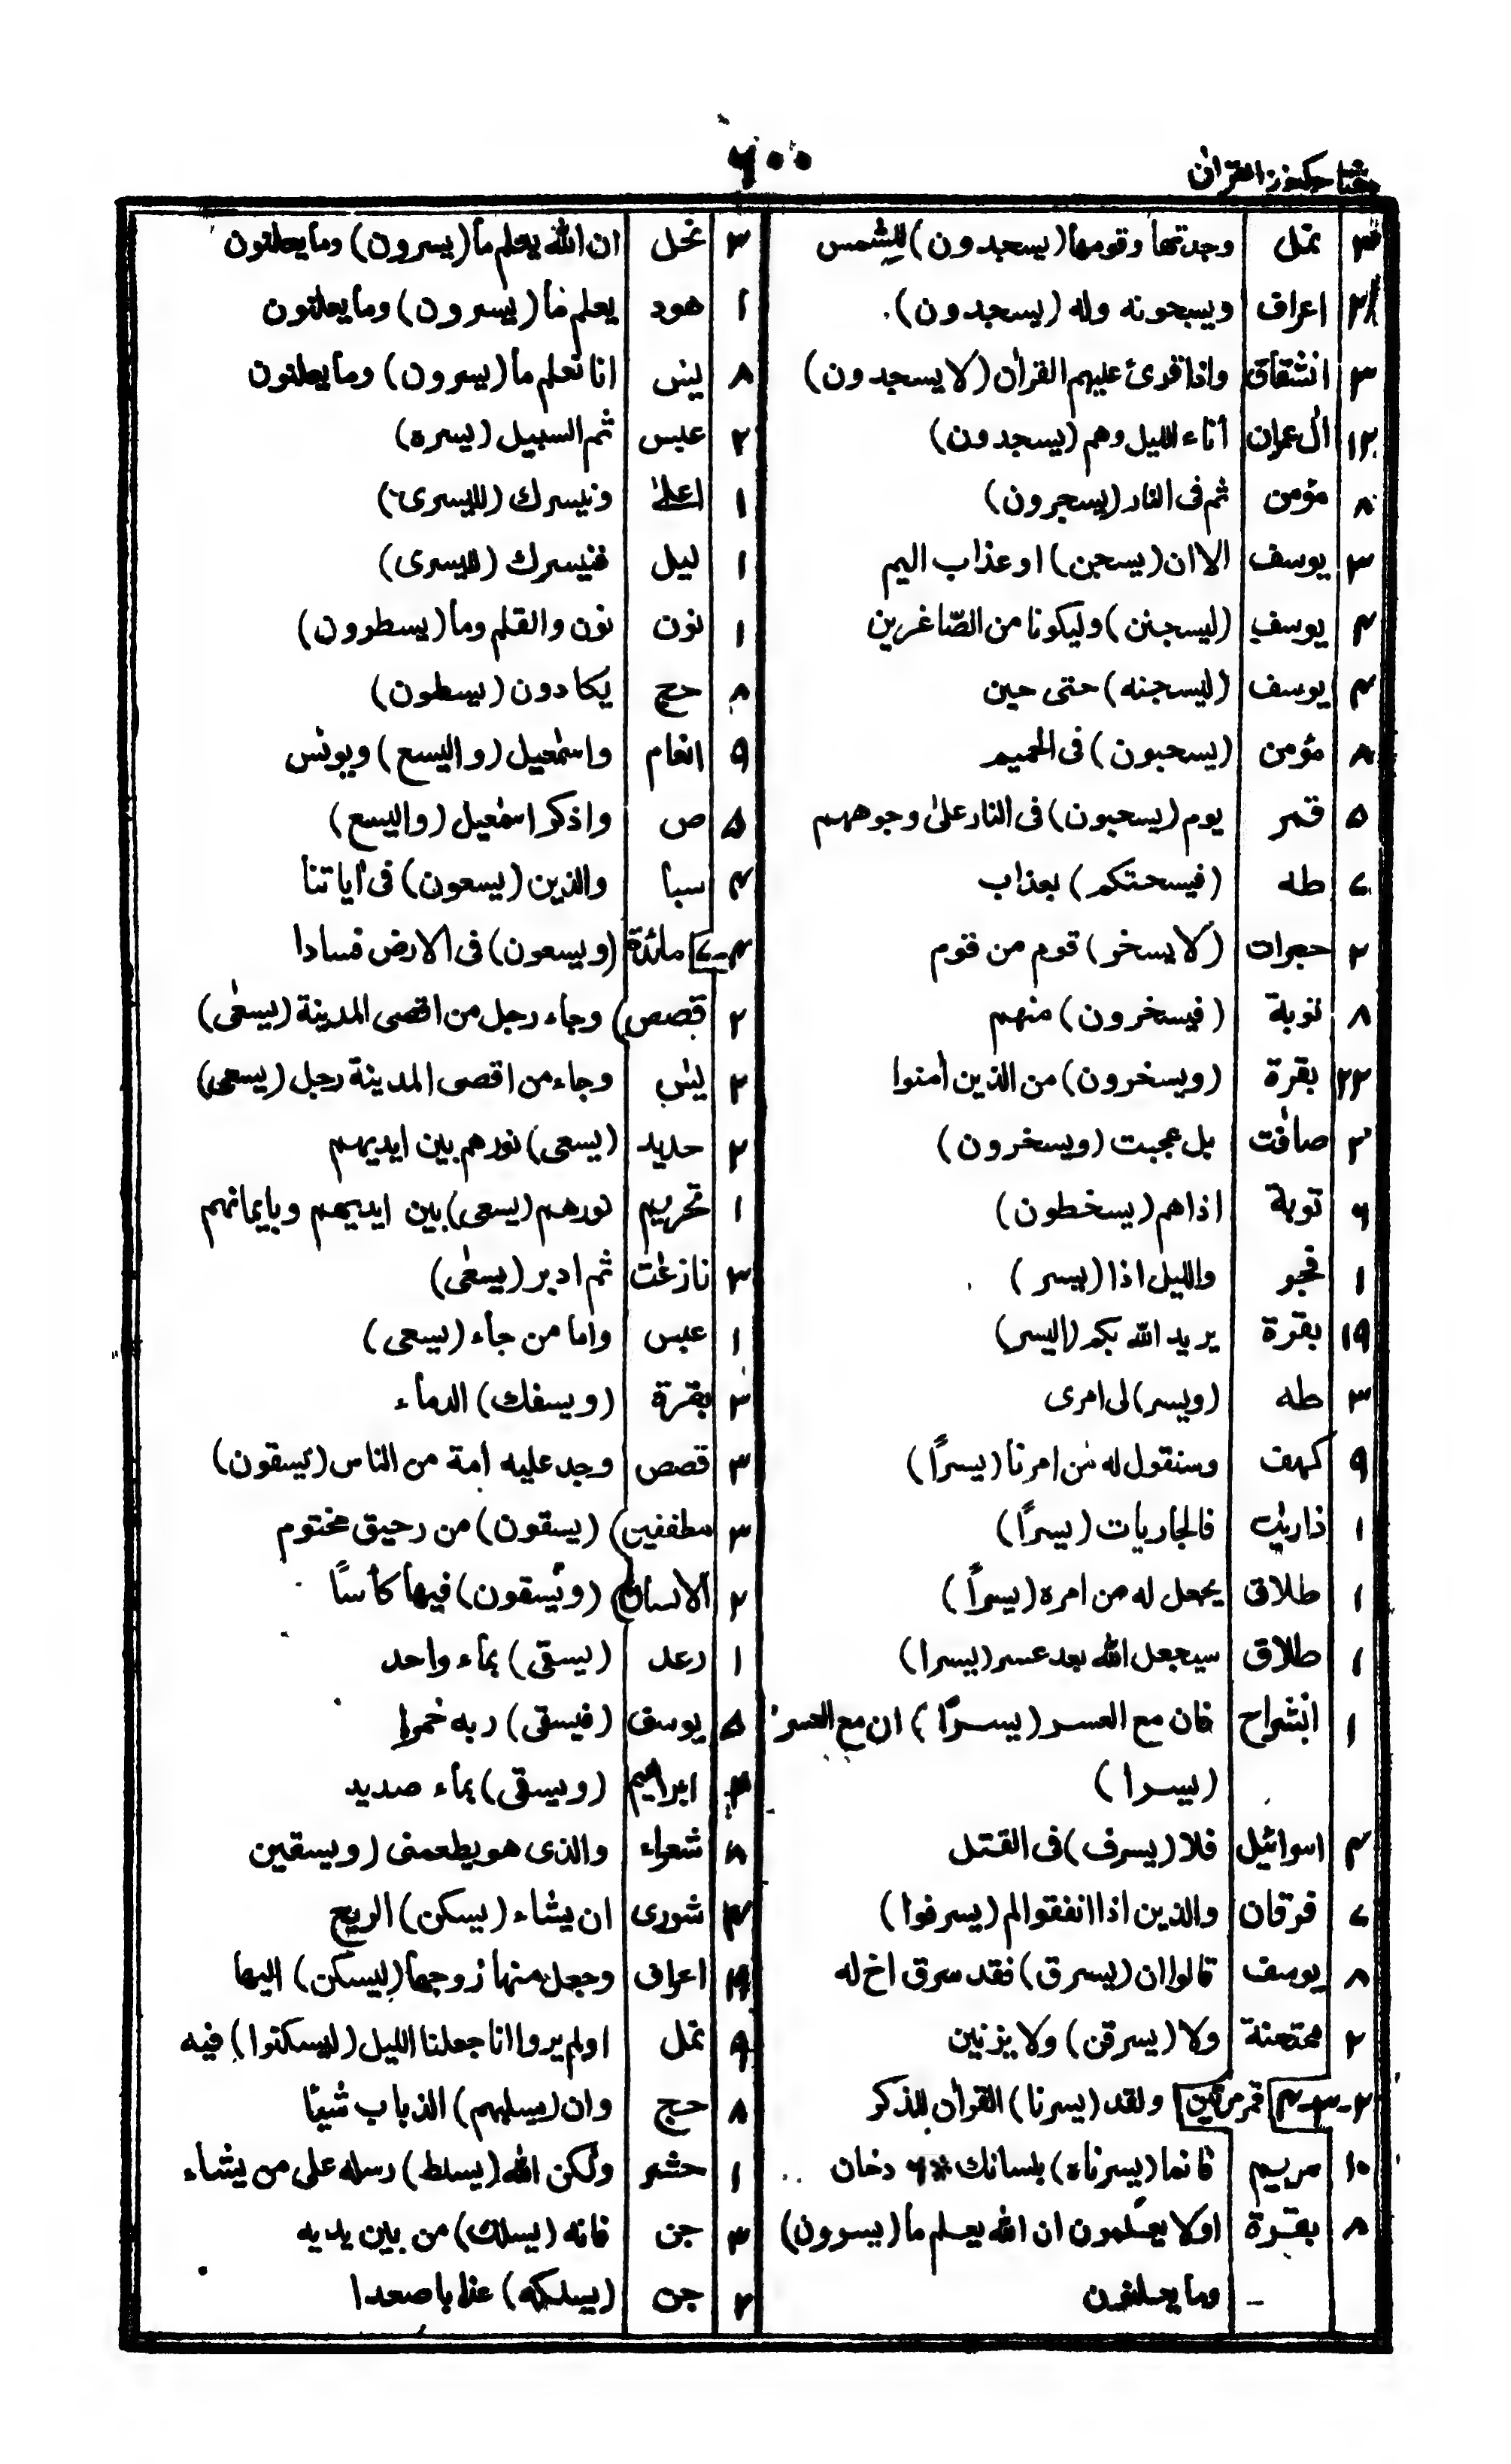 مفتاح كنوز القرآن
٦٠٠
٣ نمل وجدتها وقومها (يسجدون) للشمس
٢٤ اعراف ويسبحونه وله (يسجدون)
٣ انشقاق واذا قرئ عليهم القرآن (لا يسجدون)
١٢ آل عمران آناء الليل وهم (يسجدون)
٨ مؤمن ثم فى النار (يسجرون)
٣ يوسف الا ان (يسجن) او عذاب اليم
٤ يوسف (ليسجنن) وليكونا من الصّاغرين
٤ يوسف (ليسجننه) حتى حين
٨ مؤمن (يسحبون) فى الحميم
٥ قمر يوم (يسحبون) فى النار على وجوههم
٧ طه (فيسحتكم) بعذاب
٢ حجرات (لا يسخر) قوم من قوم
٨ توبة (فيسخرون) منهم
٢٢ بقرة (ويسخرون) من الذين أمنوا
٢ صافٰت بل عجبت (ويسخرون)
٩ توبة اذا هم (يسخطون)
١ فجر والليل اذا (يسر)
١٩ بقرة يريد الله بكم (اليسر)
٣ طه (ويسر) لى امرى
٩ كهف وسنقول له من امرنا (يسرًا)
١ ذاريٰت فالجاريات (يسرًا)
١ طلاق يجعل له من امره (يسرًا)
١ طلاق سيجعل الله بعد عسر (يسرا)
١ انشراح فان مع العسر (يسرًا) ان مع العسر
(يسرا)
٤ اسرائيل فلا (يسرف) فى القتل
٧ فرقان والذين اذا انفقوا لم (يسرفوا)
٨ يوسف قالوا ان (يسرق) فقد سرق اخ له
٢ ممتحنة ولا (يسرقن) ولا يزنين
٢-٣-٤ قمر مرتين ولقد (يسرنا) القرأن للذكر
١٠ مريم فانما (يسرناه) بلسانك * ٩ دخان
٨ بقرة اولا يعلمون ان الله يعلم ما (يسرون)
- وما يعلنون
٣ نحل ان الله يعلم ما (يسرون) وما يعلنون
١ هود يعلم ما (يسرون) وما يعلنون
٨ يٰس انا نعلم ما (يسرون) وما يعلنون
٢ عبس ثم السبيل (يسره)
١ اعلىٰ ونيسرك (لليسرى)
١ ليل فنيسرك (لليسرى)
١ نون نون والقلم وما (يسطرون)
٨ حج يكادون (يسطون)
٩ انعام واسمٰعيل (واليسع) ويونس
٥ ص واذكر اسمٰعيل (واليسع)
٤ سبا والذين (يسعون) فى أياتنا
٤-٧ مائدة (ويسعون) فى الارض فسادا
٢ قصص وجاء رجل من اقصى المدينة (يسعٰى)
٢ يٰس وجاء من اقصى المدينة رجل (يسعى)
٢ حديد (يسعى) نورهم بين ايديهم
١ تحريم نورهم (يسعى) بين ايديهم وبايمانهم
٣ نازعٰت ثم ادبر (يسعٰى)
١ عبس واما من جاء (يسعى)
٣ بقرة (ويسفك) الدماء
٣ قصص وجد عليه أمة من الناس (يسقون)
٣ مطففين (يسقون) من رحيق مختوم
٢ الانسان (ويُسقون) فيها كأسًا
١ رعد (يسقى) بماء واحد
٥ يوسف (فيسقى) ربه خمرا
٣ ابراهيم (ويسقى) بماء صديد
٨ شعراء والذى هو يطعمنى (ويسقين
٤ شورى ان يشاء (يسكن) الريح
اعراف وجعل منها زوجها (ليسكن) اليها
٩ نمل اولم يروا انا جعلنا الليل (ليسكنوا) فيه
٨ حج وان (يسلبهم) الذباب شيئا
١ حشر ولكن الله (يسلط) رسله على من يشاء
٣ جن فانه (يسلك) من بين يديه
٢ جن (يسلكه) عذابا صعدا